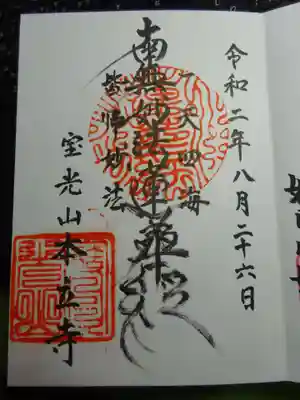 令和二年八月二十六日
一天四海
南無妙法蓮華経
皆帰妙法
宝光山本立寺